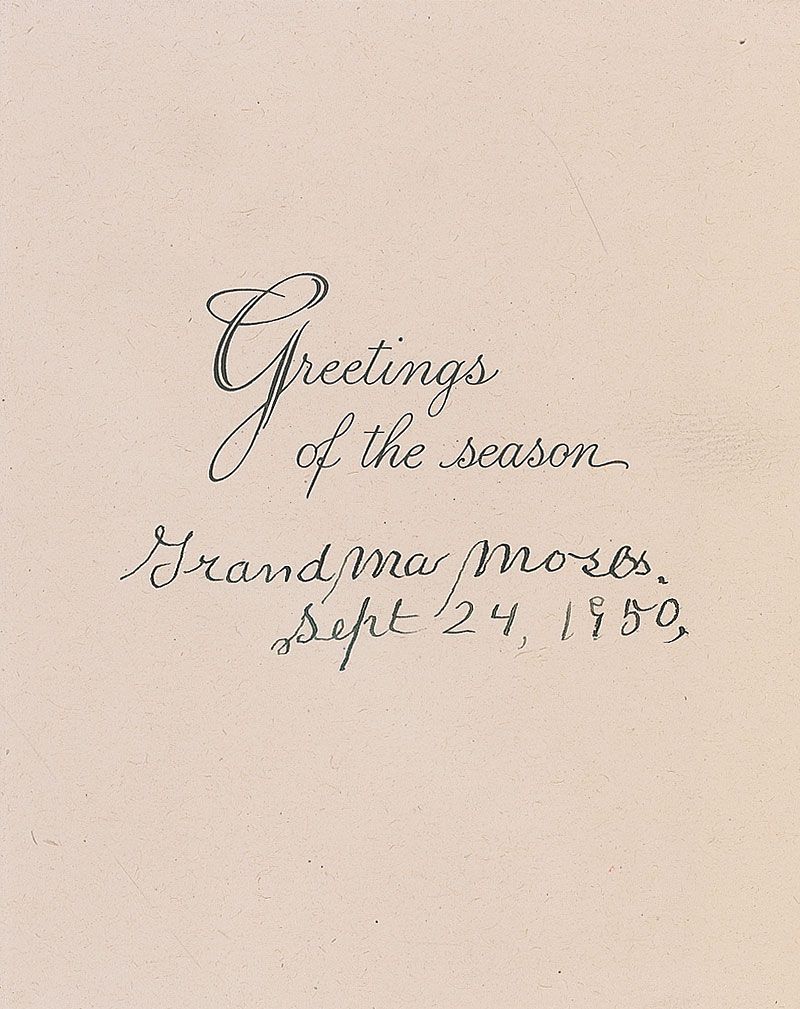 Greetings
of the season
Grandma Moses.
Sept 24, 1950,